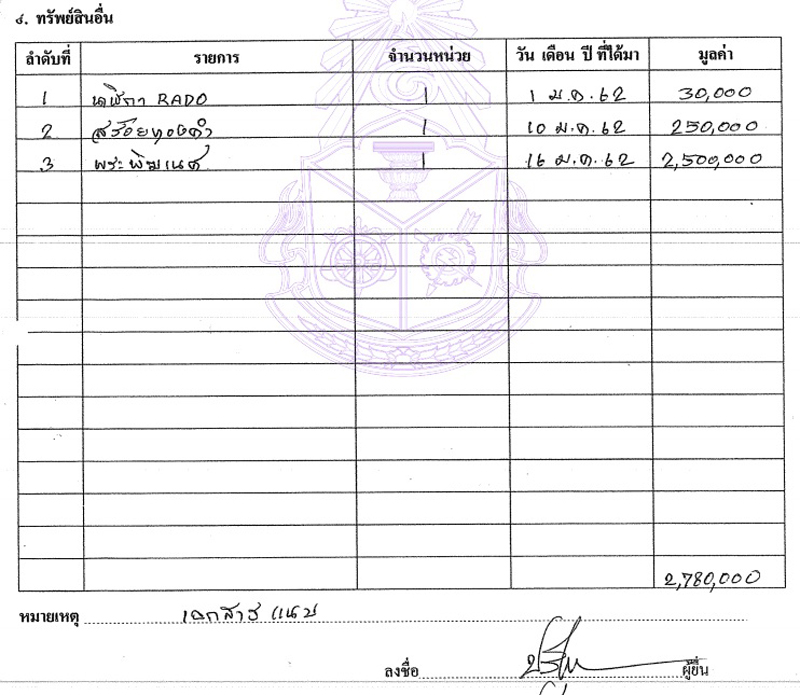 ๘. ทรัพย์สินอื่น
ลำดับที่ รายการ จำนวนหน่วย วัน เดือน ปี ที่ได้มา มูลค่า
1 นาฬิกา RADO 1 1 ม.ค. 62 30,000
2 สร้อยทองคำ 1 10 ม.ค. 62 250,000
3 พระพิฆเนศ 1 16 ม.ค. 62 2,500,000
2,780,000
หมายเหตุ เอกสาร แนบ
ลงชื่อ ผู้ยื่น